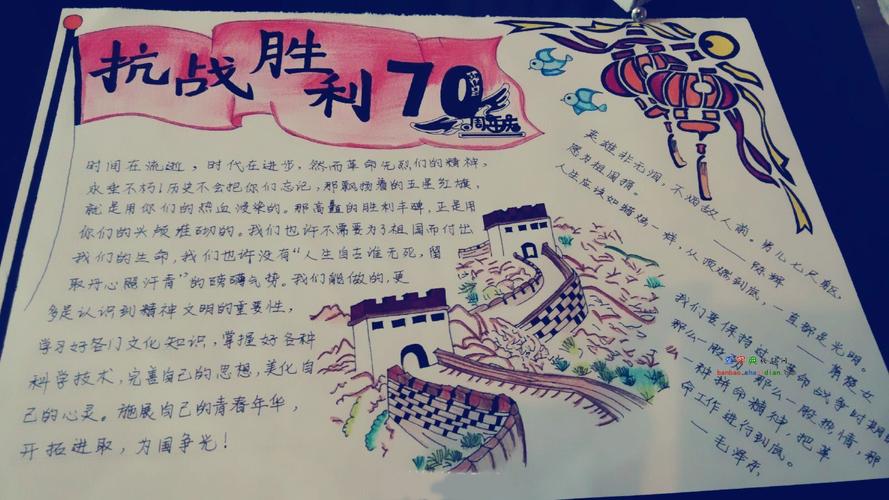 抗战胜利70
周年庆
时间在流逝，时代在进步，然而革命先烈们的精神，
永垂不朽！历史不会把你们忘记，那飘扬着的五星红旗，
就是用你们的热血浸染的。那高矗的胜利丰碑，正是用
你们的头颅堆砌的。我们也许不需要为了祖国而付出
我们的生命，我们也许没有“人生自古谁无死，留
取丹心照汗青”的磅礴气势。我们能做的，更
多是认识到精神文明的重要性，
学习好各门文化知识，掌握好各种
科学技术，完善自己的思想，美化自
己的心灵。施展自己的青春年华，
开拓进取，为国争光！
英雄非无泪，不洒敌人前。男儿七尺躯，
愿为祖国捐。
——陈辉
人生应该如蜡烛一样，从顶燃到底，一直都是光明。
——萧楚女
我们要保持过 革命战争时期的
那么一股劲，那么一股热情，那
一种拼命精神，把革
命工作进行到底。
——毛泽东